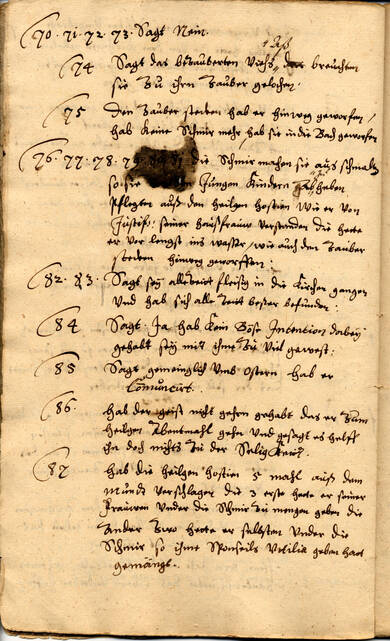 70. 71. 72. 73. Sagt Nein.
74 Sagt das bezauberten Viehs, brauchten
sie zu ihrn Zauber gelochen.
75 Den Zauber stecken hab er hinweg geworfen,
hab keine Schmir mehr, hab sie in die Bach geworfen
76. 77. 78. 79. die Schmir machen sie auß schmaltz
so sie Jungen Kindern haben
Pflegten auß den heiligen Hostien wie er von
seiner haußfrauw verstanden die hette
er vor lengst ins wasser, wie auch den Zauber
stecken hinweg geworffen:
82. 83. Sagt sey alle Zeit fleisig in die Kirchen gangen
und hab sich alle Zeit besser befunden.
84 Sagt Ja hab kein böse Intention dabey
gehabt sey mit ihme zu viel gewest:
85 Sagt gemeinglich umb Ostern hab er
Comunicirt.
86. hab der geist nicht gehrn gehabt das er zum
heiligen Abentmahl gehn und gesagt es helff
ihn doch nichts zu der Seligkeit.
87 hab die heiligen hostien 5 mahl auß dem
Mundt verschlagen die 3 erste hette er seiner
Frauwen under die Schmir zu mengen geben die
ander zwo hette er selbsten under die
Schmir so ihme geben hatt
gemängt.